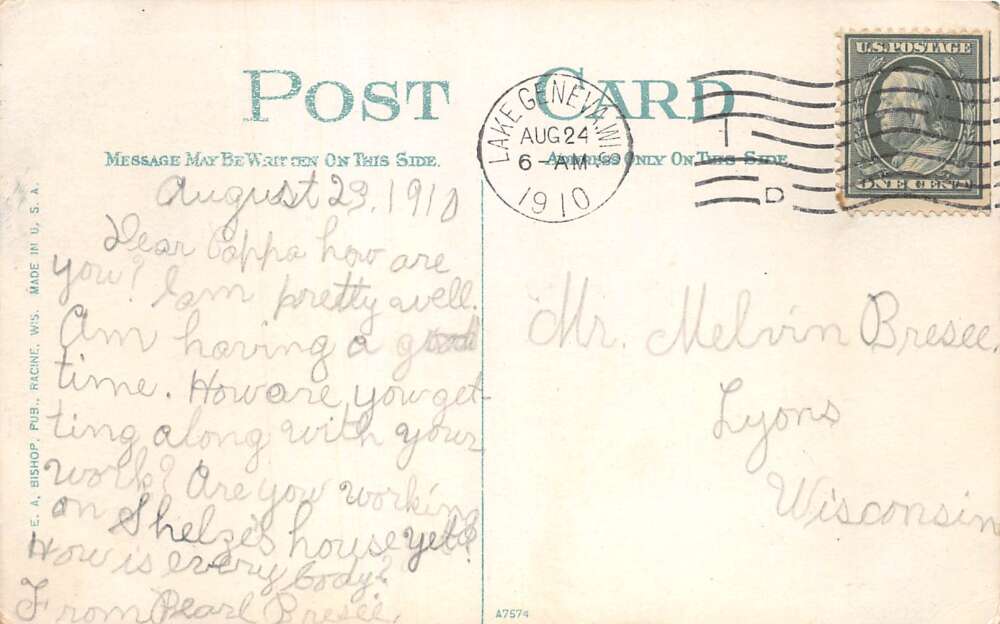 POST CARD
MESSAGE MAY BE WRITTEN ON THIS SIDE.
ADDRESS ONLY ON THIS SIDE
LAKE GENEVA, WIS.
AUG 24
6-AM
1910
D
U.S. POSTAGE
ONE CENT
August 23, 1910
Dear Pappa how are
you? I am pretty well.
Am having a good
time. How are you get-
ting along with your
work? Are you working
on Shelze's house yet?
How is every body?
From Pearl Bresee.
Mr. Melvin Bresee,
Lyons
Wisconsin
E. A. BISHOP, PUB., RACINE, WIS. MADE IN U. S. A.
A7574